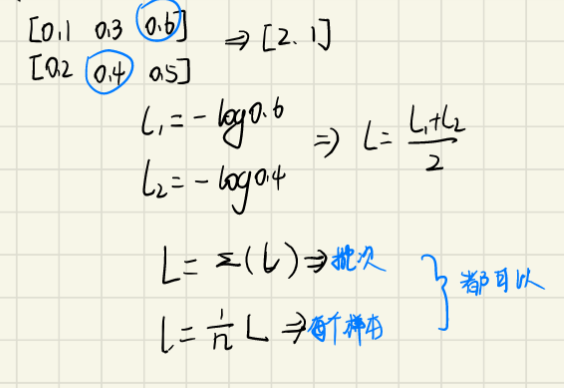 [0.1 0.3 0.6] ⇒ [2. 1]
[0.2 0.4 0.5]
l₁ = - log0.6
l₂ = - log0.4 ⇒ l = (l₁+l₂)/2
L = Σ(l) ⇒ 批次
l = 1/n L ⇒ 每个样本
都可以